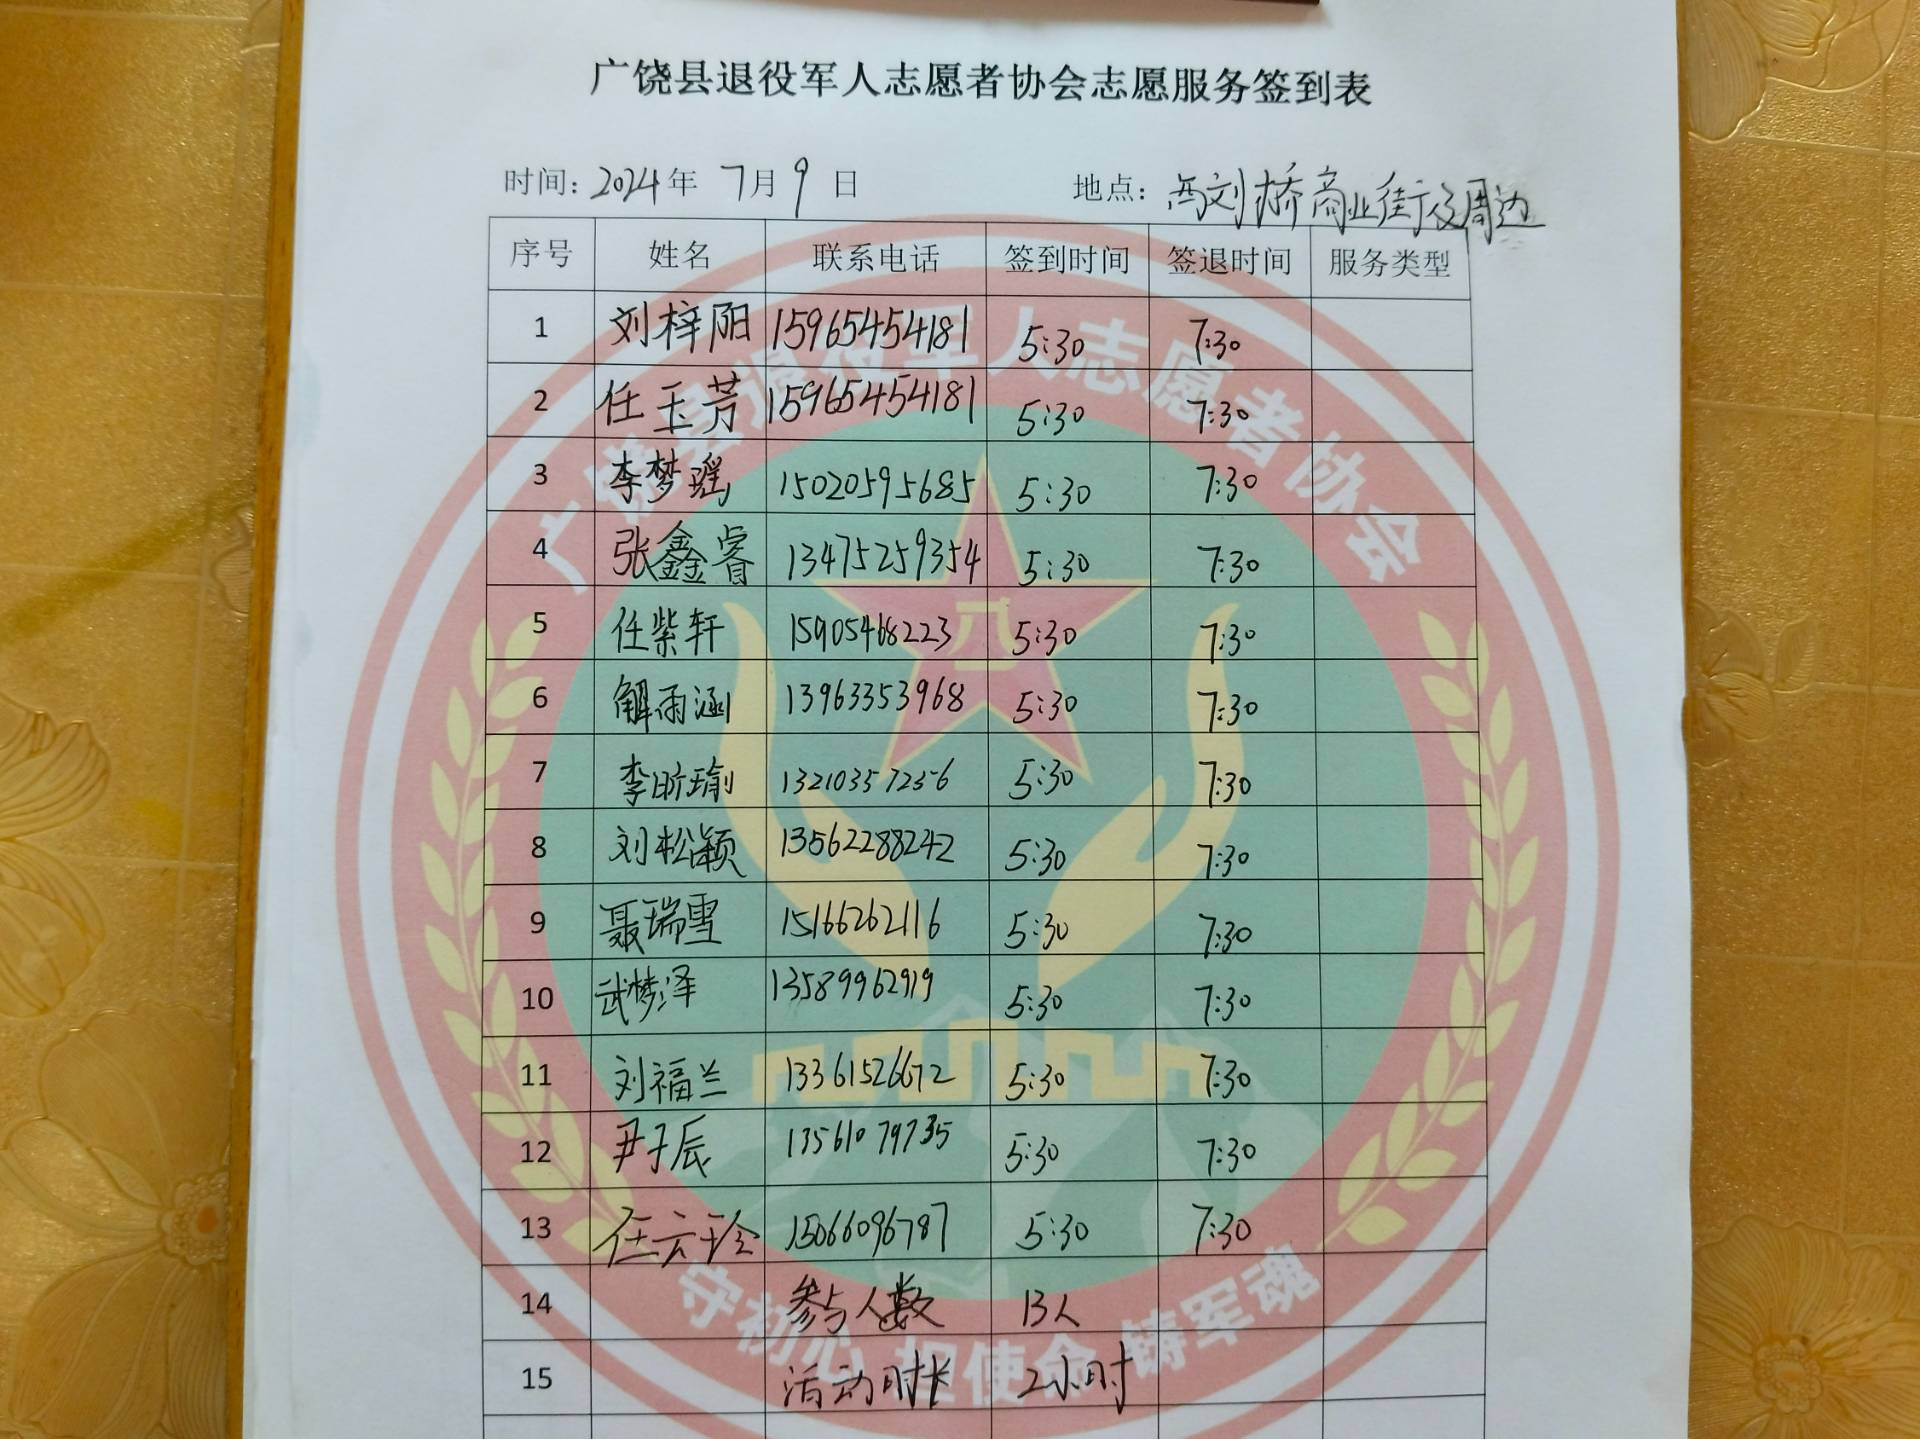 广饶县退役军人志愿者协会志愿服务签到表
时间: 2024年 7月 9 日 地点: 西刘桥商业街及周边
序号 姓名 联系电话 签到时间 签退时间 服务类型
1 刘梓阳 15965454181 5:30 7:30
2 任玉芳 15965454181 5:30 7:30
3 李梦瑶 15020595685 5:30 7:30
4 张鑫睿 13475259354 5:30 7:30
5 任紫轩 15905468223 5:30 7:30
6 解雨涵 13963353968 5:30 7:30
7 李昕瑜 13210357256 5:30 7:30
8 刘松颖 13562288242 5:30 7:30
9 聂瑞雪 15166262116 5:30 7:30
10 武梦泽 13589962919 5:30 7:30
11 刘福兰 13361526672 5:30 7:30
12 尹子辰 13561079735 5:30 7:30
13 任云珍 15066096787 5:30 7:30
14 参与人数 13人
15 活动时长 2小时
广饶县退役军人志愿者协会
守初心 担使命 铸军魂